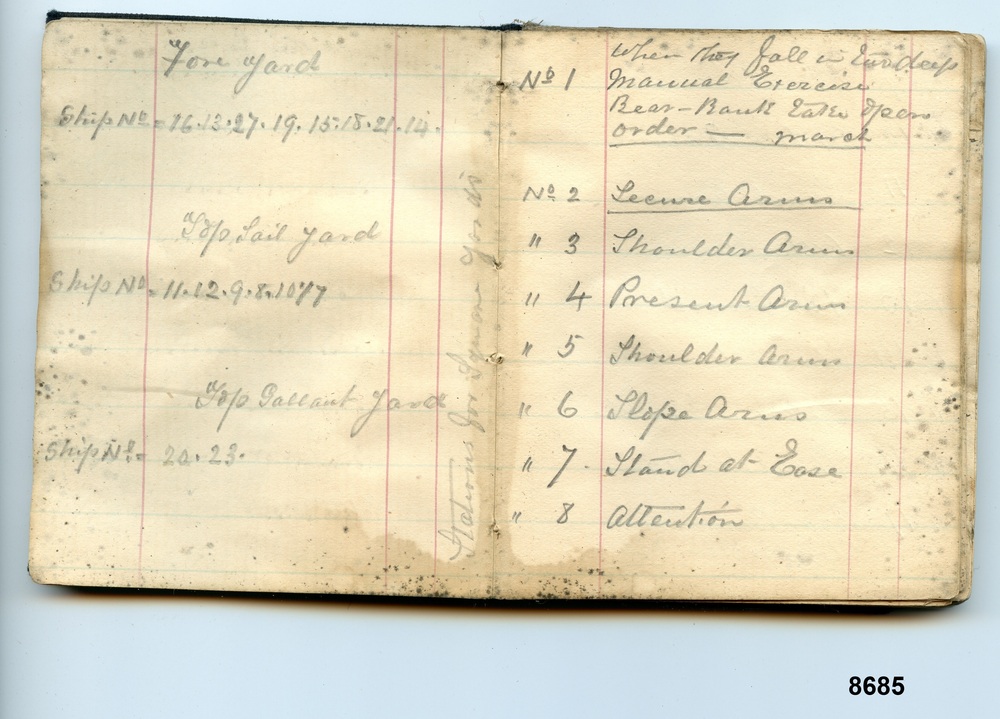 Fore Yard
Ship No = 16.13.27.19.15.18.21.14.
Top Sail Yard
Ship No = 11.12.9.8.10.17
Top Gallant Yard
Ship No = 20.23.
Stations for Square Yards
No 1 When they fall in two deep
Manual Exercise
Rear-Rank take open
order — march
No 2 Secure Arms
" 3 Shoulder Arms
" 4 Present Arms
" 5 Shoulder Arms
" 6 Slope Arms
" 7. Stand at Ease
" 8 Attention
8685